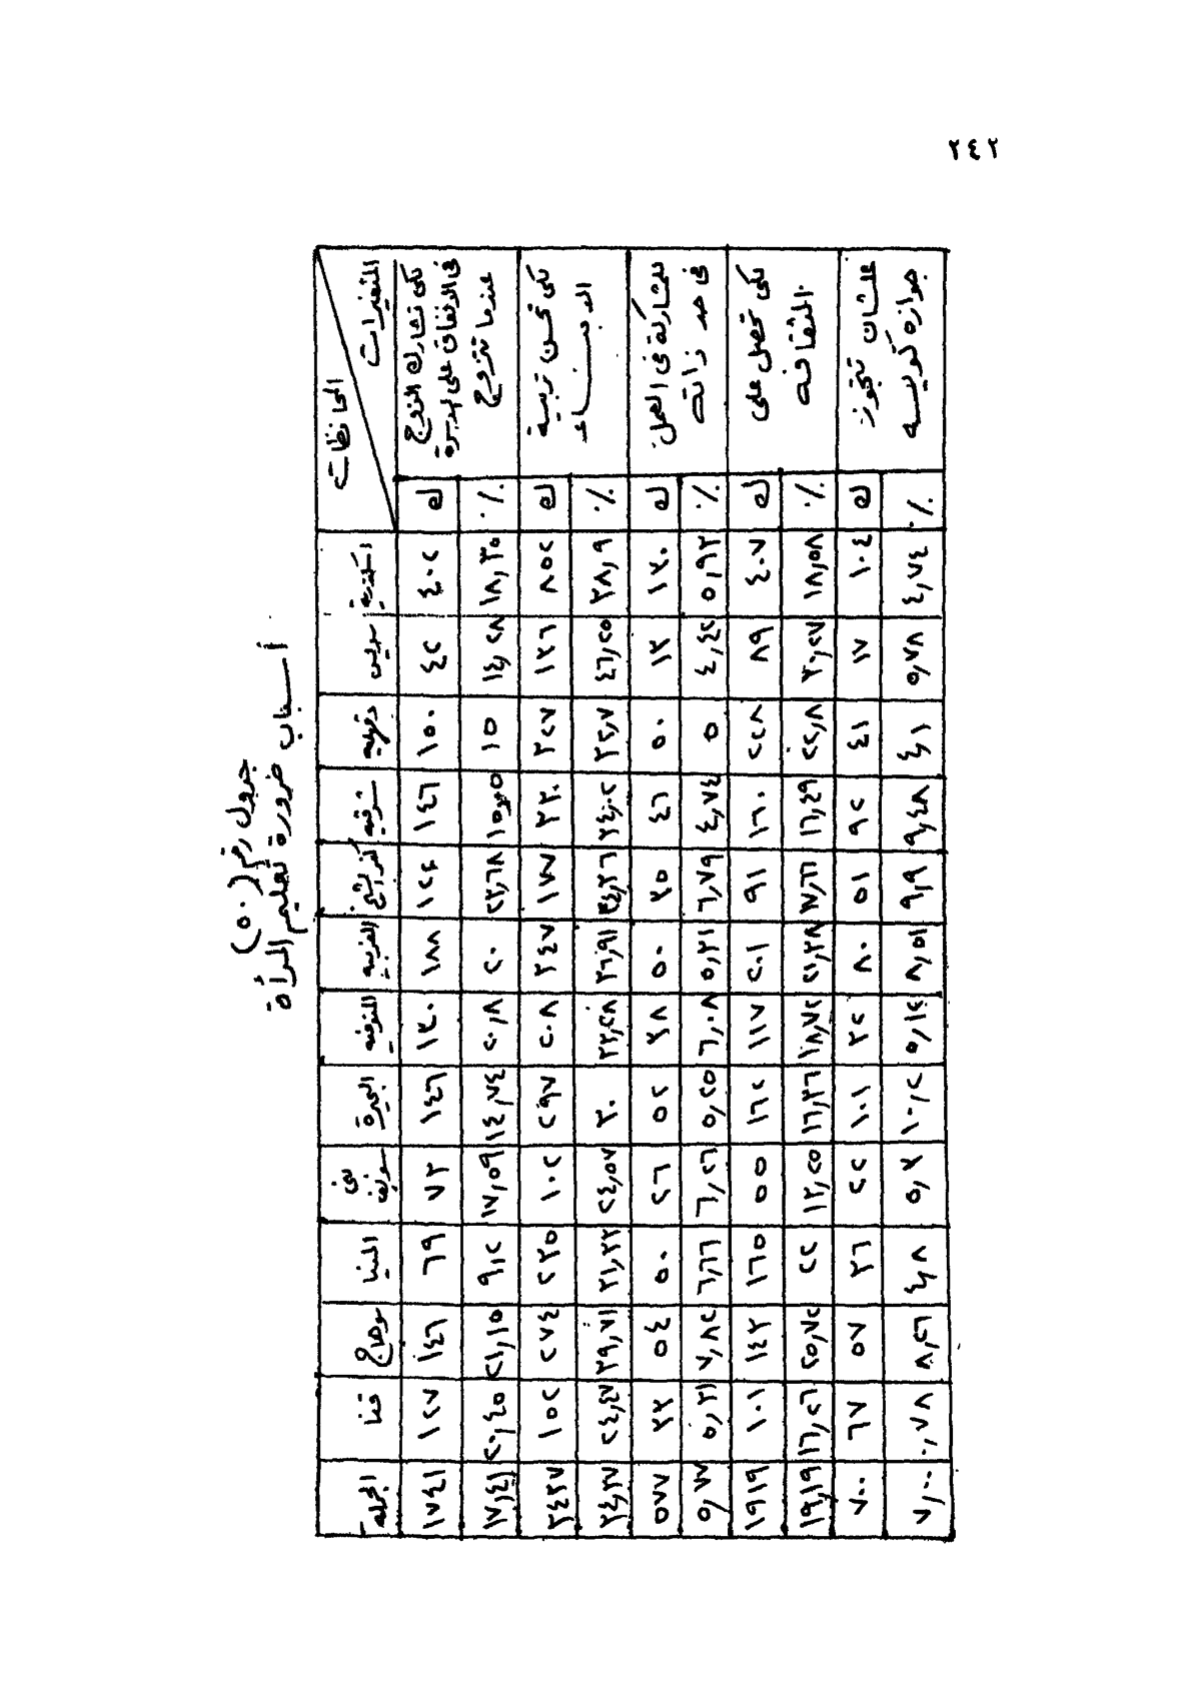 ٢٤٢
جدول رقم (٥٠)
أسباب ضرورة تعليم المرأة
المتغيرات المحافظات اسكندرية سويس دقهليه شرقيه كفر الشيخ الغربيه المنوفيه البحيرة بنى سويف المنيا سوهاج قنا الجملة
لكى تشارك الزوج فى الانفاق على الاسرة عندما تتزوج
ك ٤٠٢ ٤٢ ١٥٠ ١٤٦ ١٢٤ ١٨٨ ١٣٠ ١٤٦ ٧٣ ٦٩ ١٤٦ ١٢٧ ١٧٤١
٪ ١٨,٣٥ ١٤,٢٨ ١٥ ١٥,٠٥ ٢٣,٦٨ ٢٠ ٢٠,٨ ١٤,٧٤ ١٧,٥٩ ٩,٢ ٢١,١٥ ٢٠,٤٥ ١٧,٤١
لكى تحسن تربية الابناء
ك ٨٥٢ ١٣٦ ٣٢٧ ٣٣٠ ١٧٧ ٣٤٧ ٢٠٨ ٢٩٧ ١٠٢ ٢٣٥ ٢٧٤ ١٥٢ ٣٤٣٧
٪ ٣٨,٩ ٤٦,٢٥ ٣٢,٧ ٣٤,٠٢ ٣٤,٣٦ ٣٦,٩١ ٣٣,٢٨ ٣٠ ٢٤,٥٧ ٣١,٣٣ ٣٩,٧١ ٢٤,٤٧ ٣٤,٣٧
للمشاركة فى العمل فى حد ذاته
ك ١٣٠ ١٣ ٥٠ ٤٦ ٣٥ ٥٠ ٣٨ ٥٢ ٢٦ ٥٠ ٥٤ ٣٣ ٥٧٧
٪ ٥,٩٣ ٤,٤٢ ٥ ٤,٧٤ ٦,٧٩ ٥,٣١ ٦,٠٨ ٥,٢٥ ٦,٢٦ ٦,٦٦ ٧,٨٢ ٥,٣١ ٥,٧٧
لكى تحصل على الثقافه
ك ٤٠٧ ٨٩ ٢٢٨ ١٦٠ ٩١ ٢٠١ ١١٧ ١٦٢ ٥٥ ١٦٥ ١٤٣ ١٠١ ١٩١٩
٪ ١٨,٥٨ ٣٠,٢٧ ٢٢,٨ ١٦,٤٩ ١٧,٦٦ ٢١,٣٨ ١٨,٧٢ ١٦,٣٦ ١٣,٢٥ ٢٢ ٢٥,٧٢ ١٦,٢٦ ١٩,١٩
علشان تتجوز جوازه كويسه
ك ١٠٤ ١٧ ٤١ ٩٢ ٥١ ٨٠ ٣٢ ١٠١ ٢٢ ٣٦ ٥٧ ٦٧ ٧٠٠
٪ ٤,٧٤ ٥,٧٨ ٤,١ ٩,٤٨ ٩,٩ ٨,٥١ ٥,١٤ ١٠,٢ ٥,٣ ٤,٨ ٨,٢٦ ١٠,٧٨ ٧,٠٠